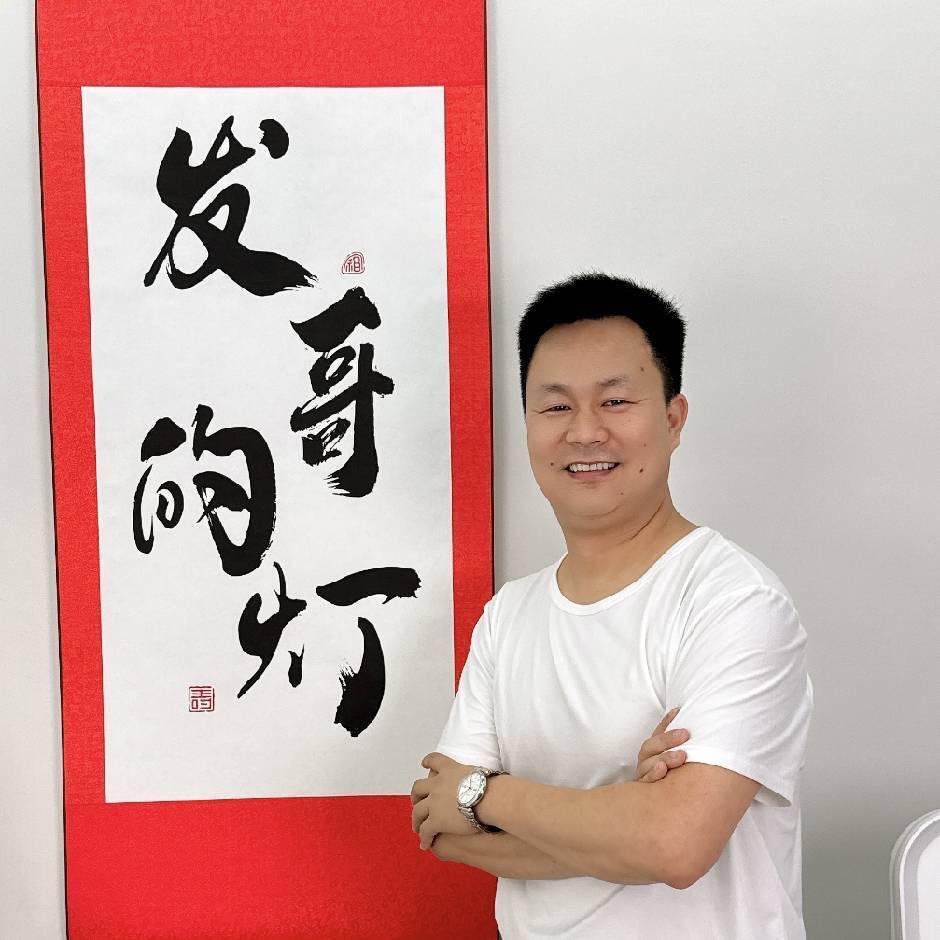 发哥的灯